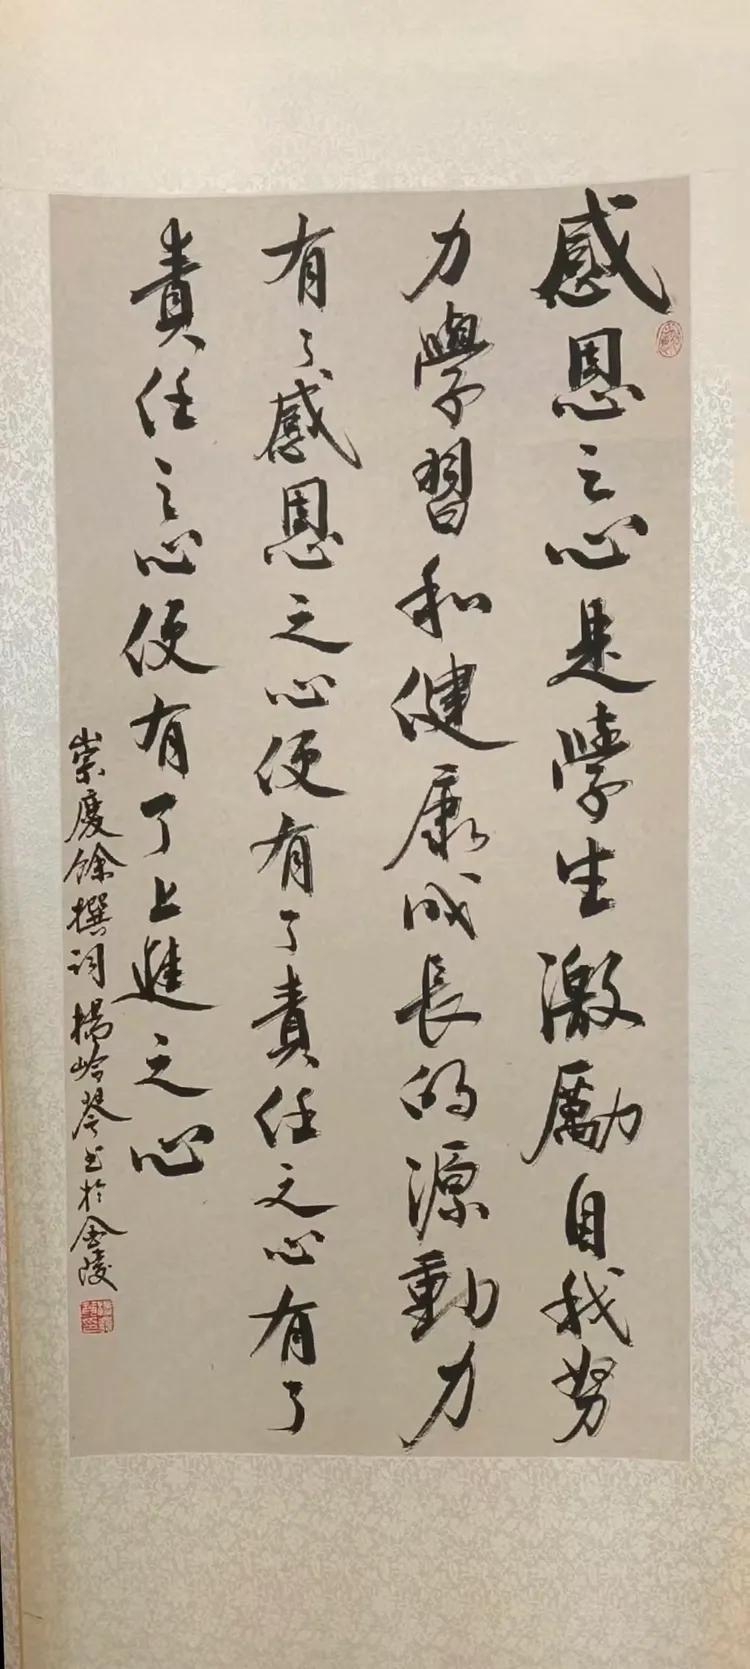 感恩之心是學生激勵自我努
力學習和健康成長的源動力
有了感恩之心便有了責任之心有了
責任之心便有了上進之心
崇慶餘撰词楊岭琴书於金陵